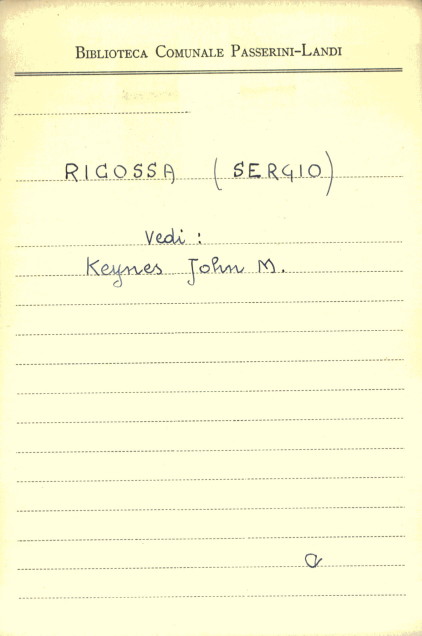 BIBLIOTECA COMUNALE PASSERINI-LANDI
RICOSSA (SERGIO)
Vedi :
Keynes John M.
a